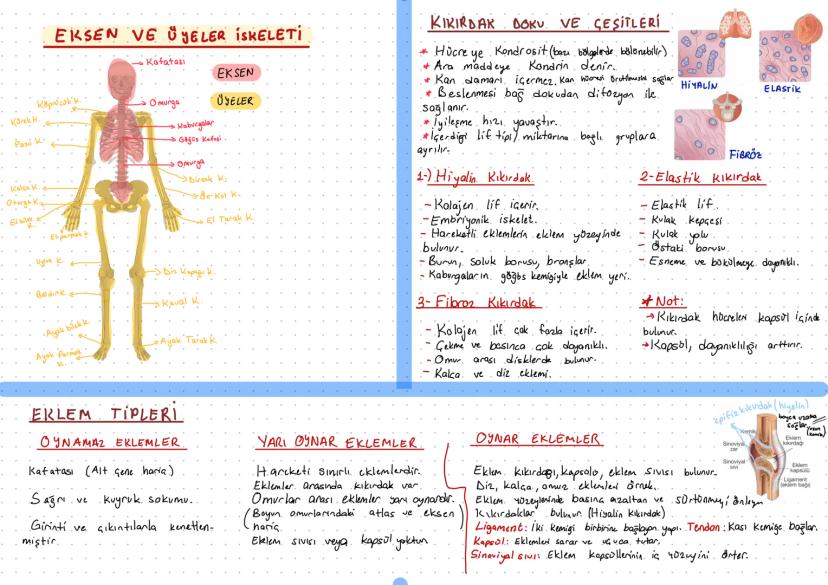 EKSEN VE ÜYELER İSKELETİ
Kafatası
EKSEN
ÜYELER
Omurga
Kaburgalar
Göğüs Kafesi
Omurga
Köprücük K.
Kürek K.
Pazı K.
Dirsek K.
Ön Kol K.
El Tarak K.
Kalça K.
Oturga K.
El bilek K.
El parmak K.
Uyluk K.
Diz Kapağı K.
Baldır K.
Kaval K.
Ayak bilek K.
Ayak Tarak K.
Ayak Parmak K.
KIKIRDAK DOKU VE ÇEŞİTLERİ
* Hücreye Kondrosit (bazı bölgelerde bölünebilir)
* Ara maddeye Kondrin denir.
* Kan damarı içermez.
* Beslenmesi bağ dokudan difüzyon ile
sağlanır.
* İyileşme hızı yavaştır.
* İçerdiği lif tipi / miktarına bağlı gruplara
ayrılır.
HİYALİN
ELASTİK
FİBRÖZ
1-) Hiyalin Kıkırdak
- Kolajen lif içerir.
- Embriyonik iskelet.
- Hareketli eklemlerin eklem yüzeyinde
bulunur.
- Burun, soluk borusu, bronşlar
- Kaburgaların göğüs kemiğiyle eklem yeri.
2- Elastik Kıkırdak
- Elastik lif.
- Kulak kepçesi
- Kulak yolu
- Östaki borusu
- Esneme ve bükülmeye dayanıklı.
3- Fibröz Kıkırdak
- Kolajen lif çok fazla içerir.
- Çekme ve basınca çok dayanıklı.
- Omur arası disklerde bulunur.
- Kalça ve diz eklemi.
* Not:
→ Kıkırdak hücreleri kapsül içinde
bulunur.
→ Kapsül, dayanıklılığı arttırır.
EKLEM TİPLERİ
OYNAMAZ EKLEMLER
Kafatası (Alt çene hariç)
Sağrı ve kuyruk sokumu.
Girinti ve çıkıntılarla kenetlen-
miştir.
YARI OYNAR EKLEMLER
Hareketi sınırlı eklemlerdir.
Eklemler arasında kıkırdak var.
Omurlar arası eklemler yarı oynardır.
(Boyun omurlarındaki atlas ve eksen
hariç)
Eklem sıvısı veya kapsül yoktur.
OYNAR EKLEMLER
Eklem kıkırdağı, kapsülü, eklem sıvısı bulunur.
Diz, kalça, omuz eklemleri örnek.
Eklem yüzeylerinde basıncı azaltan ve sürtünmeyi önleyen
kıkırdaklar bulunur. (Hiyalin Kıkırdak)
Ligament: İki kemiği birbirine bağlayan yapı. Tendon: Kası kemiğe bağlar.
Kapsül: Eklemleri sarar ve uç uca tutar.
Sinoviyal sıvı: Eklem kapsüllerinin iç yüzeyini örter.
epifiz kıkırdak (hiyalin)
boyca uzama
sağlar
Kemik
Sinoviyal
zar
Sinoviyal
sıvı
Eklem
kıkırdağı
Eklem
kapsülü
Ligament
(eklem bağı)